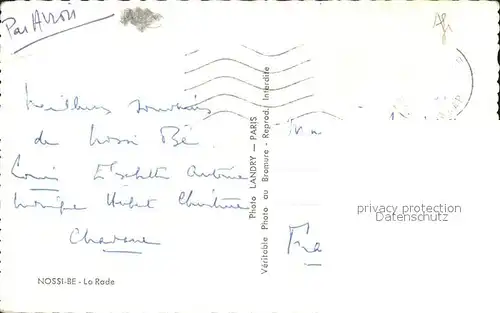 Par Avion
Afr
Meilleurs souvenirs
de Nossi Bé.
Louis Elisabeth Antoine
Monique Hubert Christiane
Chavanne
NOSSI-BE - La Rade
Photo LANDRY — PARIS
Véritable Photo au Bromure - Reprod. Interdite
privacy protection
Datenschutz
Fra